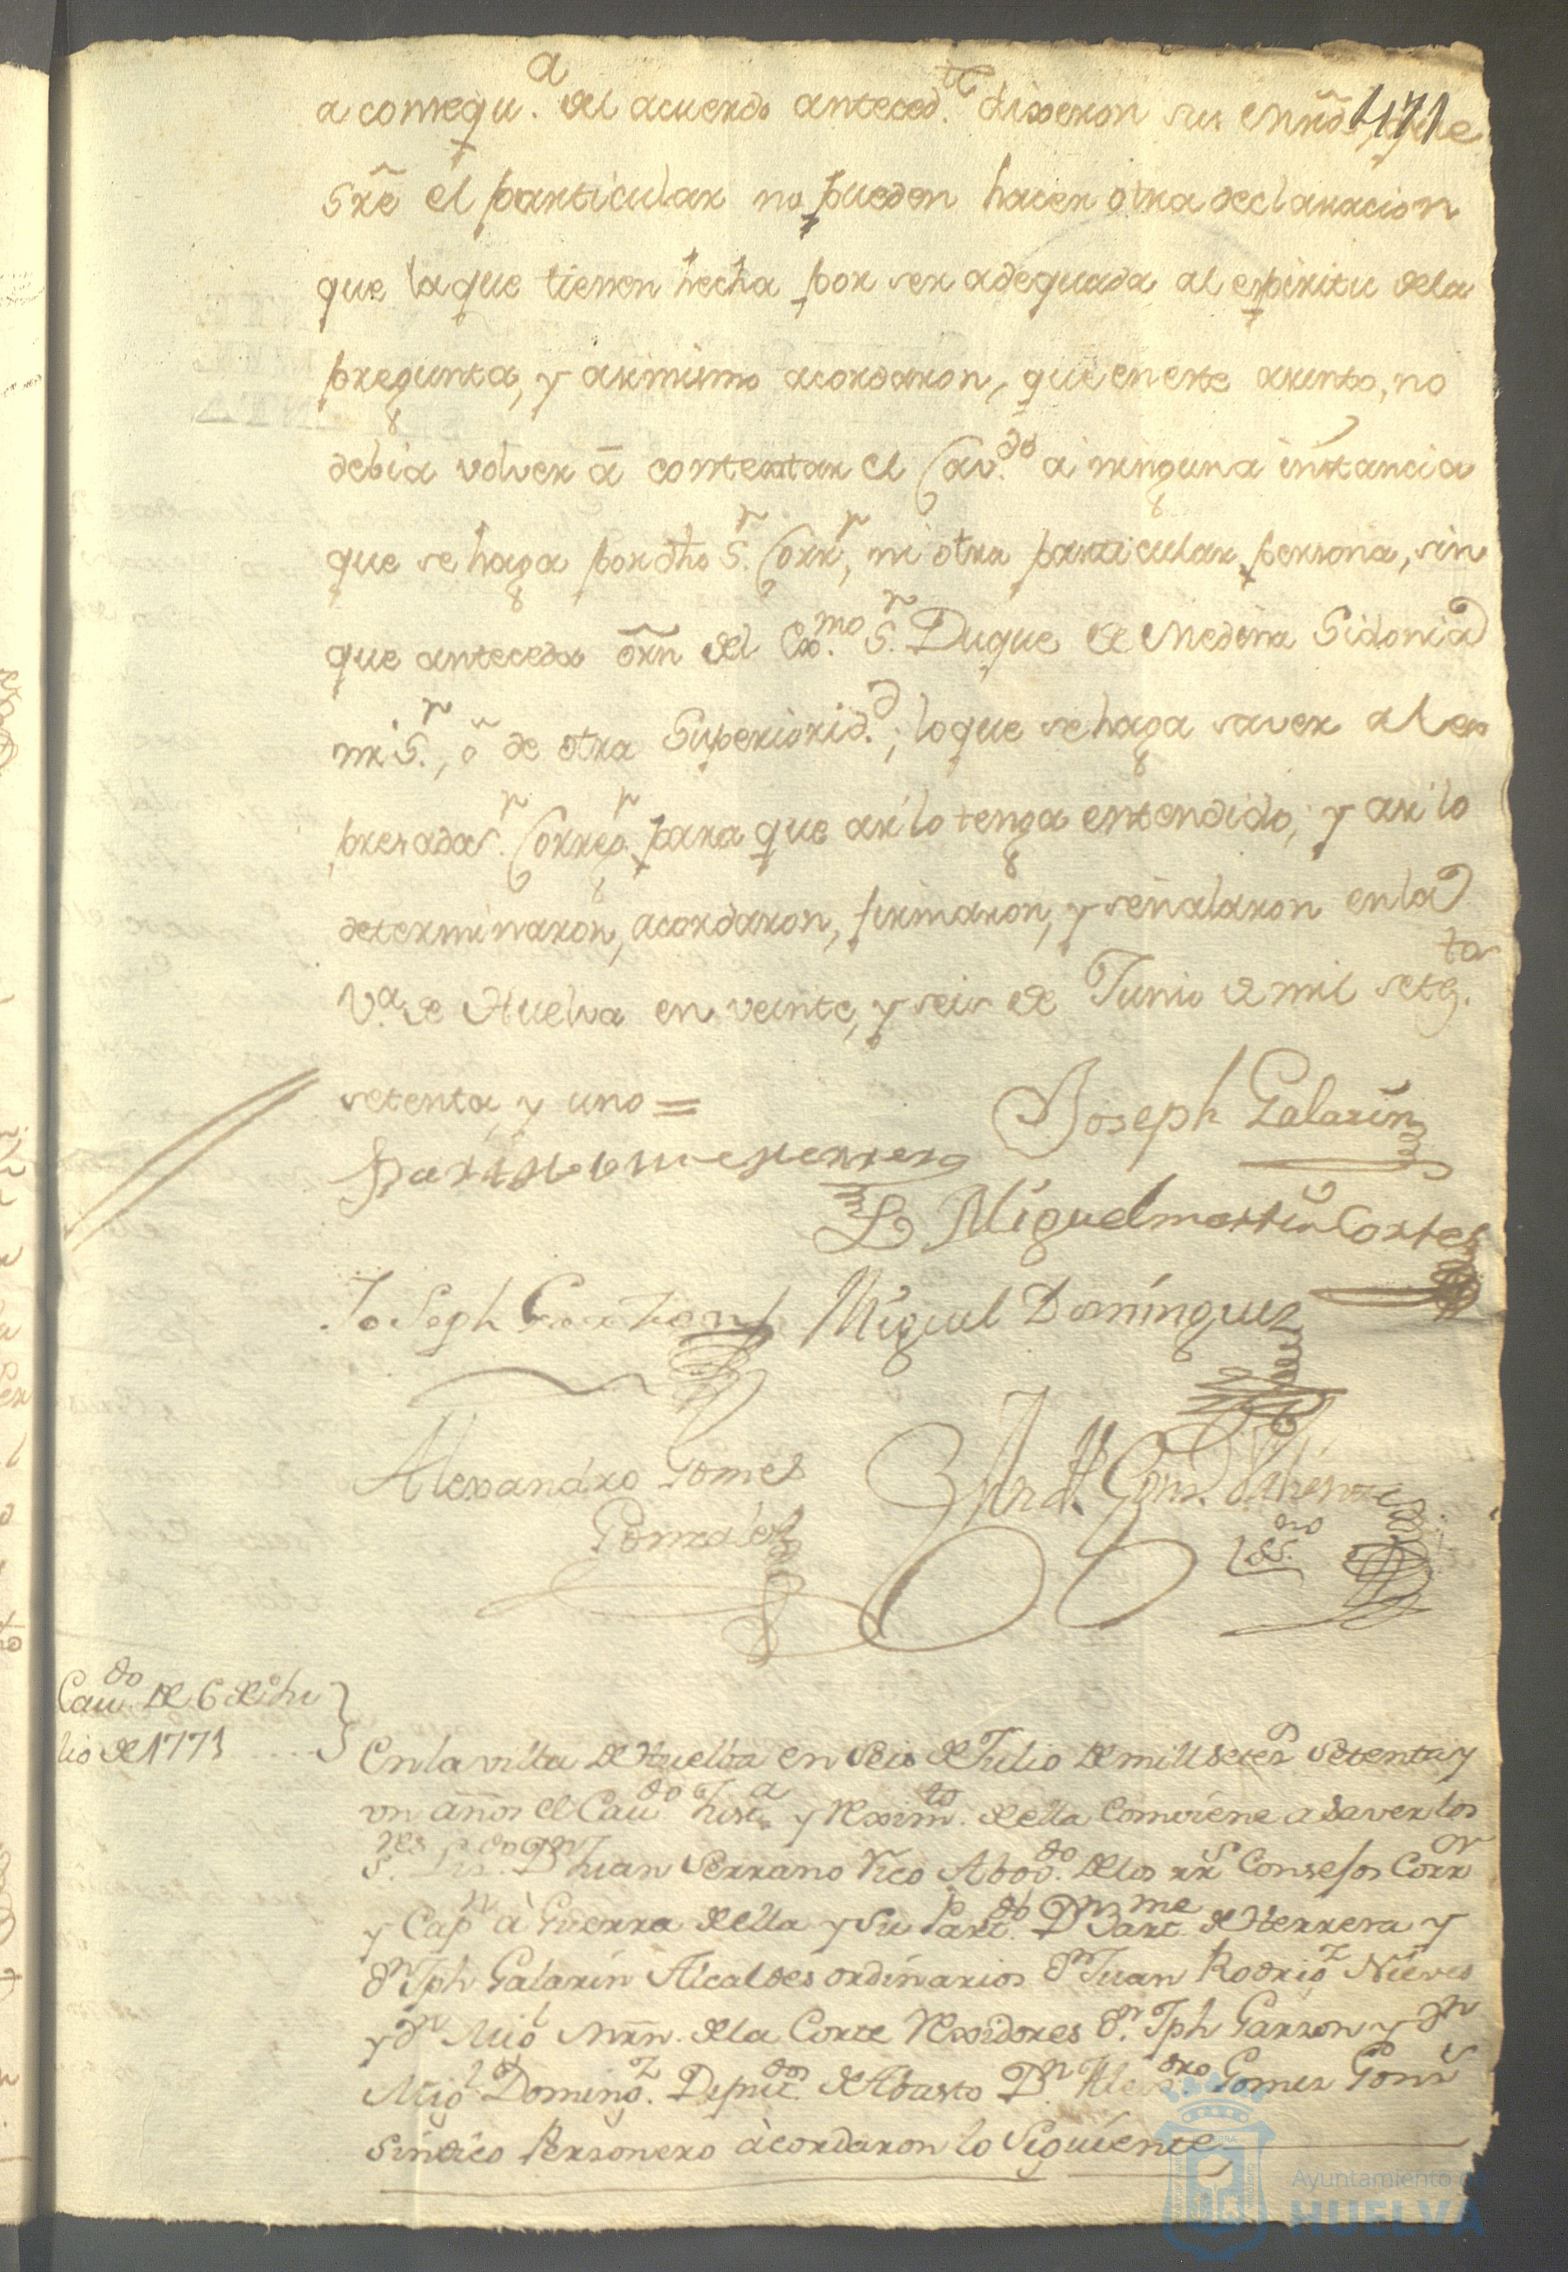 a consequ.a del acuerdo anteced.te dixeron sus Mrds, que
171
sre el particular no pueden hacer otra declaracion
que la que tienen hecha por ser adequada al espiritu dela
pregunta, y asimismo acordaron, que en este asunto, no
debia volver à contextar el Cav.do a ninguna instancia
que se haga por dho S.r Corr.r, ni otra particular persona, sin
que anteceda orn del Exc.mo S.r Duque de Medina Sidonia
mi S.r, o de otra Superiorid.d; lo que se haga saver al ex
presada S.r Correg.r para que asi lo tenga entendido; y asi lo
determinaron, acordaron, firmaron, y señalaron en la
V.a de Huelva en veinte, y seis de Junio de mil setez.tos
setenta, y uno =
Joseph Galarin
Bartolome Herrera
Miguel martin Cortes
Joseph Garzon
Miguel Dominguez
Alexandro Gomes
Gonzales
Cau.do de 6 de Ju
lio de 1771
En la villa de Huelba en Seis de Julio de mill setez.s setenta y
un años el Cau.do Just.a y Rexim.to de ella Combiene a saver los
S.res Liz.do D.n Juan Serrano Vico Abog.do de los r.s Consejos Corr.or
y Cap.n à Guerra de ella y su Part.do D.n Bart.me de Herrera y
d.n Jph Galarin Alcaldes ordinarios d.n Juan Rodrig.z Nieves
y d.n Mig.l Mrn. de la Corte Rexidores d.n Jph Garzon y d.n
Mig.l Doming.z Diput.dos de Abasto D.n Alex.dro Gomez Gonz.s
Sindico Personero àcordaron lo Siguiente
Ayuntamiento de
HUELVA